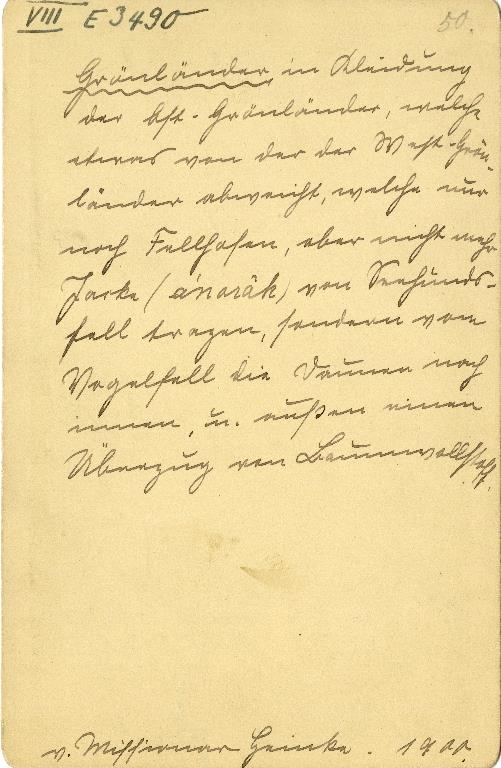 VIII E 3490
50.
Grönländer in Kleidung
der Ost-Grönländer, welche
etwas von der der West-Grön-
länder abweicht, welche nur
noch Fellhosen, aber nicht mehr
Jacke (ánorâk) von Seehunds-
fell tragen, sondern vom
Vogelfell die Daunen nach
innen, u. außen einen
Überzug von Baumwollstoff.
v. Missionar Heincke. 1900.